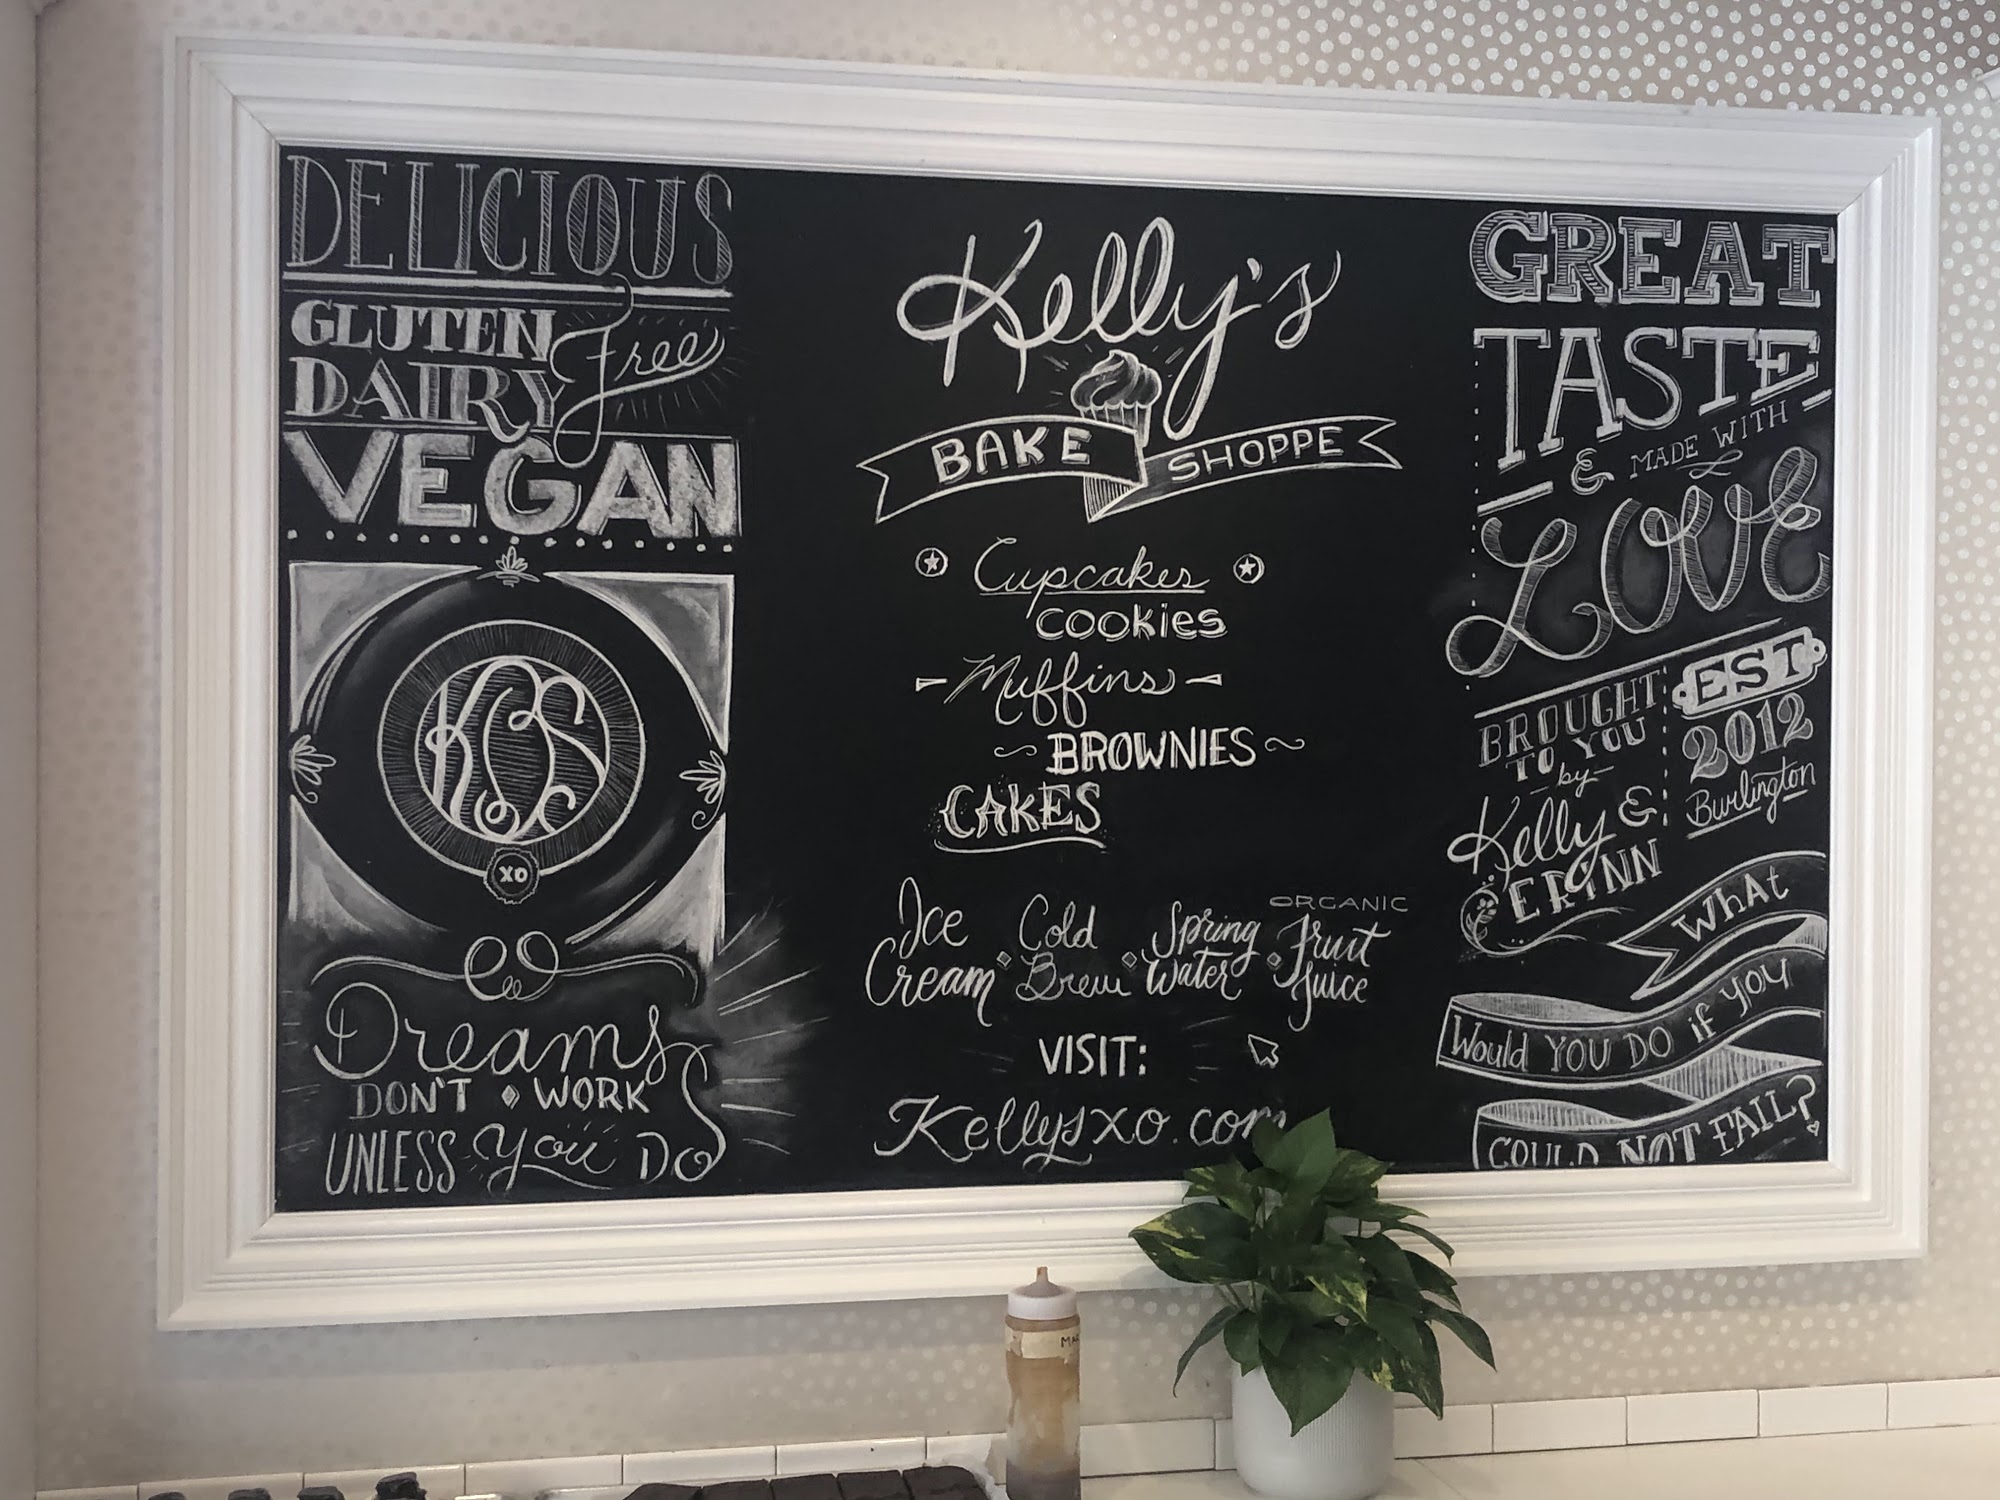 DELICIOUS
GLUTEN
DAIRY
Free
VEGAN
KBS
XO
Dreams
DON'T WORK
UNLESS you DO
Kelly's
BAKE SHOPPE
Cupcakes
COOKIES
Muffins
BROWNIES
CAKES
Ice
Cream
Cold
Brew
Spring
Water
ORGANIC
Fruit
Juice
VISIT:
Kellysxo.com
GREAT
TASTE
& MADE WITH
LOVE
BROUGHT
TO YOU
by
Kelly &
ERINN
EST
2012
Burlington
What
Would YOU DO if YOU
COULD NOT FAIL?